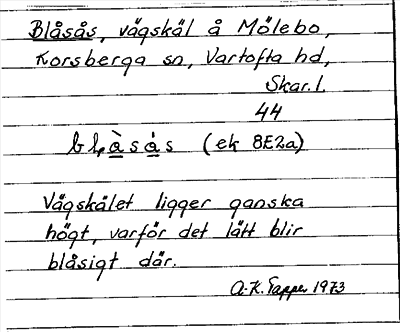 Blåsås, vägskäl å Mölebo,
Korsberga sn, Vartofta hd,
Skar. l.
44
(ek 8E2a)
Vägskälet ligger ganska
högt, varför det lätt blir
blåsigt där.
A.K. Tapper 1973